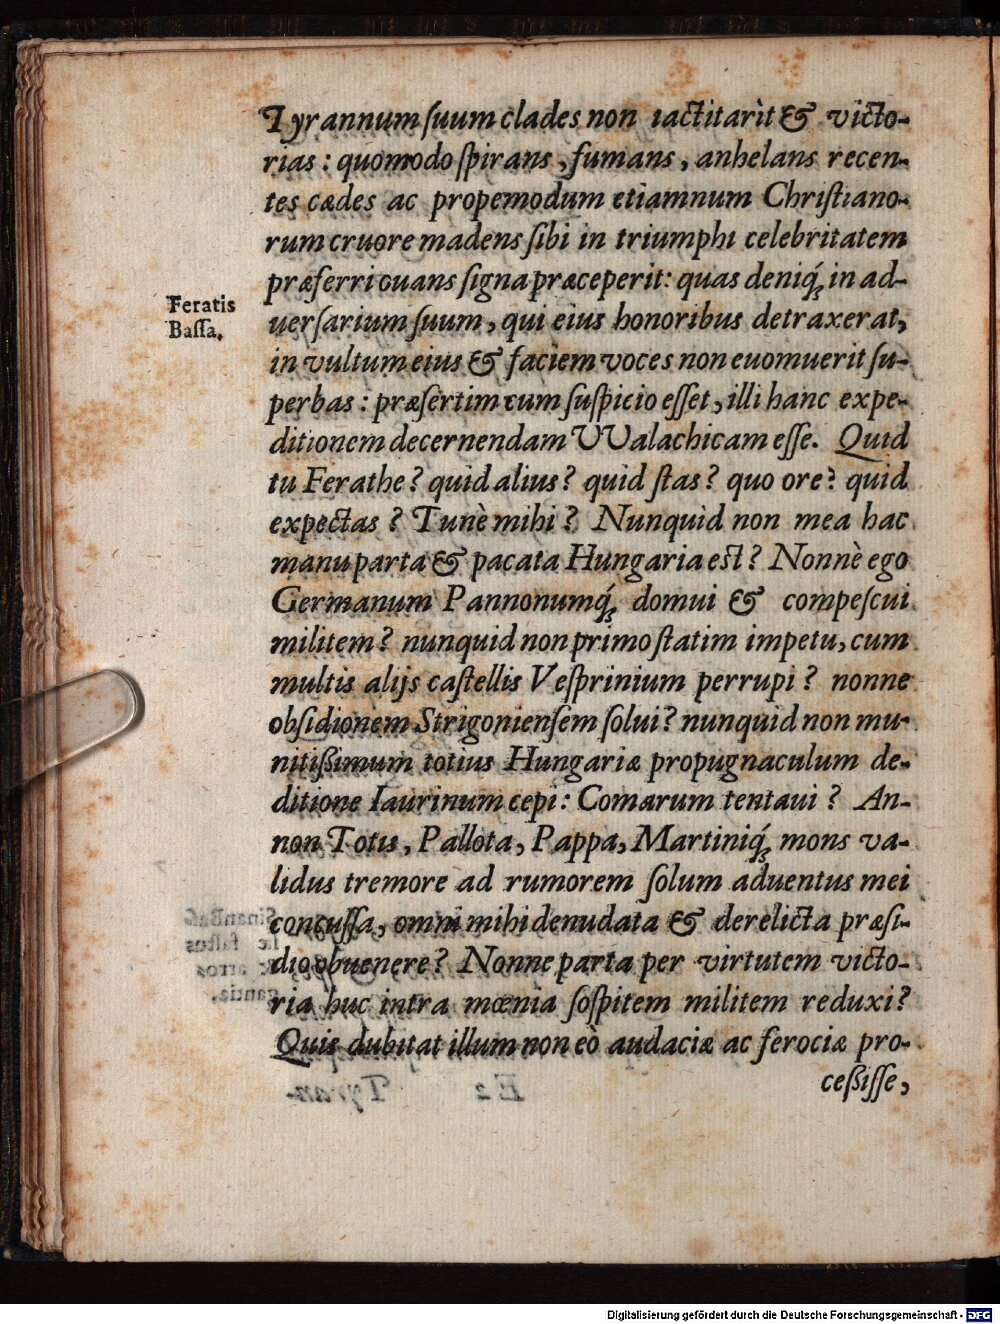 Tyrannum ſuum clades non iactitarìt & victo-
rias: quomodo ſpirans, fumans, anhelans recen-
tes cædes ac propemodum etiamnum Chriſtiano-
rum cruore madens ſibi in triumphi celebritatem
præferri ouans ſigna præceperit: quas deniq́; in ad-
Feratis
Baſſa.
uerſarium ſuum, qui eius honoribus detraxerat,
in vultum eius & faciem voces non euomuerit ſu-
perbas: præſertim cum ſuſpicio eſſet, illi hanc expe-
ditionem decernendam VValachicam eſſe. Quid
tu Ferathe? quid alius? quid ſtas? quo ore? quid
expectas? Tunè mihi? Nunquid non mea hac
manu parta & pacata Hungaria est? Nonnè ego
Germanum Pannonumq́; domui & compeſcui
militem? nunquid non primo ſtatim impetu, cum
multis alijs caſtellis Veſprinium perrupi? nonne
obſidionem Strigonienſem ſolui? nunquid non mu-
nitißimum totius Hungariæ propugnaculum de-
ditione Iaurinum cepi: Comarum tentaui? An-
non Totis, Pallota, Pappa, Martiniq́; mons va-
lidus tremore ad rumorem ſolum aduentus mei
concuſſa, omni mihi denudata & derelicta præſi-
dio obuenere? Nonne parta per virtutem victo-
ria huc intra mœnia ſoſpitem militem reduxi?
Quis dubitat illum non eò audaciæ ac ferociæ pro-
ceßiſſe,
Digitalisierung gefördert durch die Deutsche Forschungsgemeinschaft - DFG